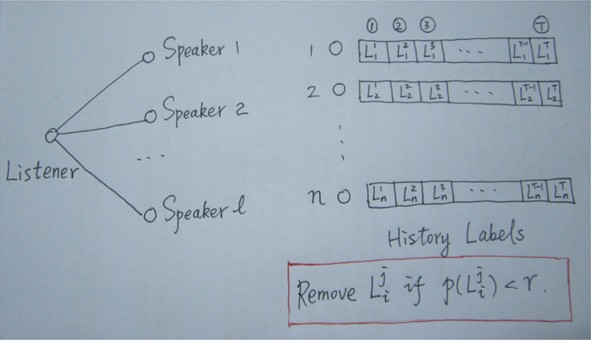 Listener
Speaker 1
Speaker 2
...
Speaker l
① ② ③ Ⓣ
1 L₁¹ L₁² L₁³ ... L₁ᵀ⁻¹ L₁ᵀ
2 L₂¹ L₂² L₂³ ... L₂ᵀ⁻¹ L₂ᵀ
⋮
n Lₙ¹ Lₙ² Lₙ³ ... Lₙᵀ⁻¹ Lₙᵀ
History Labels
Remove Lᵢʲ if p(Lᵢʲ) < r.